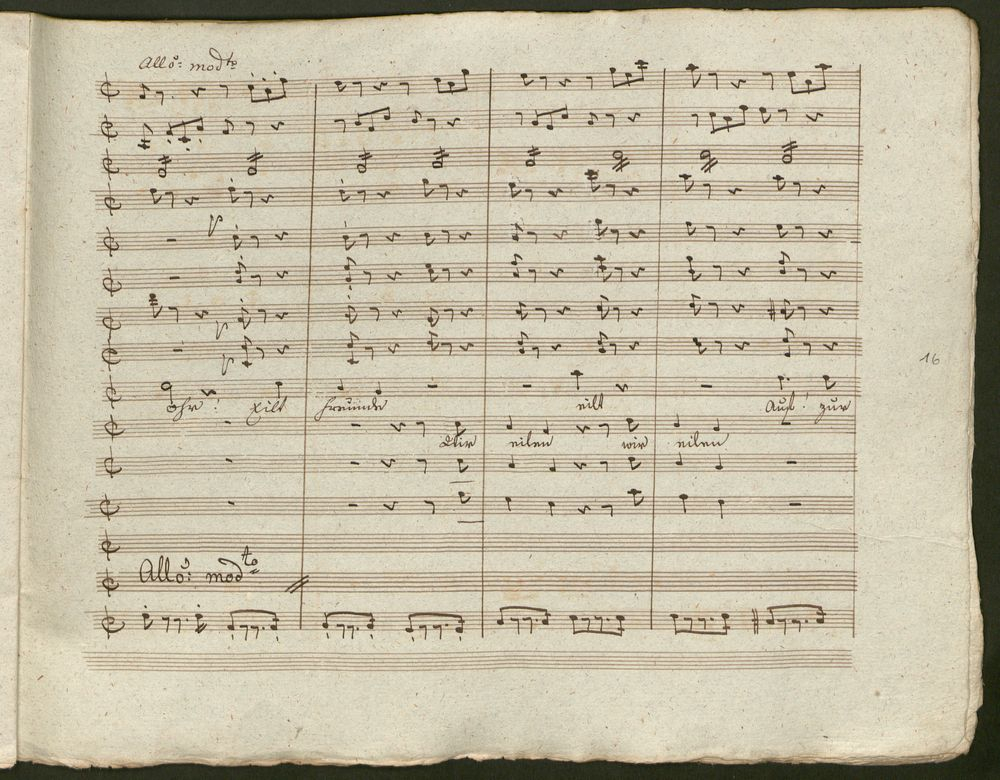 Allo: modto
16
ohr! Eilt Freunde eilt Auf! zur
Wir eilen wir eilen
Allo: modto